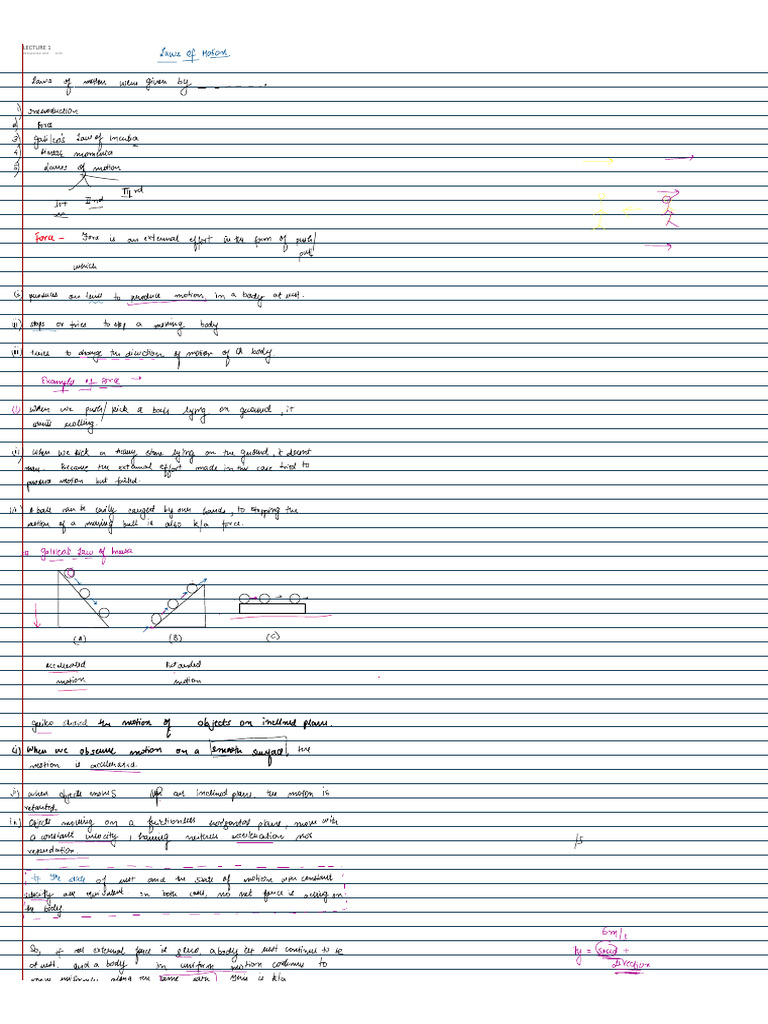 LECTURE 1
Laws of Motion
Laws of motion were given by _ _ _ _ _ _ .
1) Introduction
2) Force
3) Galileo's Law of Inertia
4) momenta
5) Lawes of motion
Ist IInd IIIrd
Force - Force is an external effort in the form of push/
pull
which
(i) produces or tries to produce motion, in a body at rest.
(ii) stops or tries to stop a moving body
(iii) tries to change the direction of motion of a body.
Example of Force →
(i) When we push/kick a ball lying on ground, it
starts rolling.
(ii) When we kick a heavy stone lying on the ground, it doesnt
move. Because the external effort made in this case tried to
produce motion but failed.
(iii) A ball can be easily caught by our hands, to stopping the
motion of a moving ball is also k/a force.
Law of
(A) (B) (C)
accelerated Retarded
motion motion
the motion of objects on inclined plane.
(i) When we observe motion on a smooth surface, the
motion is accelerated.
ii) when objects moves up an inclined plane, the motion is
retarted.
iii) Object moving on a frictionless horizontal plane, move with
a constant velocity, having neither acceleration nor
retardation.
/5
The state of rest and the state of motion with constant
velocity are equivalent. In both case, no net force is acting on
the body
6m/s
So, if net external force is zero, a body at rest continue to be
at rest. And a body in uniform motion continues to
= speed +
direction
move uniformly along the same path. This is k/a